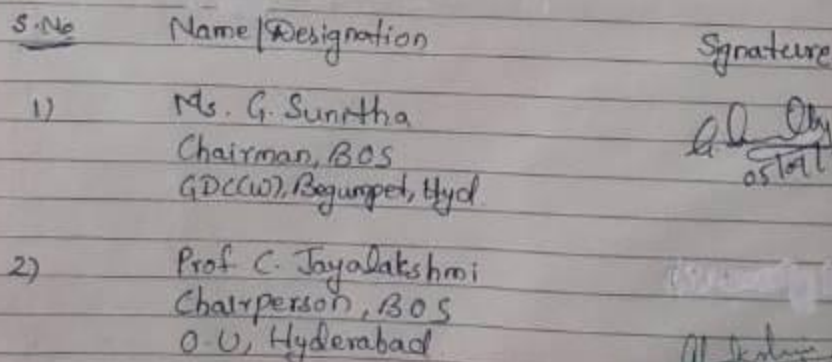 S.No Name/Designation Sgnature
1) Ms. G. Sunitha
Chairman, BOS
GDC(W), Begumpet, Hyd
2) Prof C. Jayalakshmi
Chairperson, BOS
O.U, Hyderabad